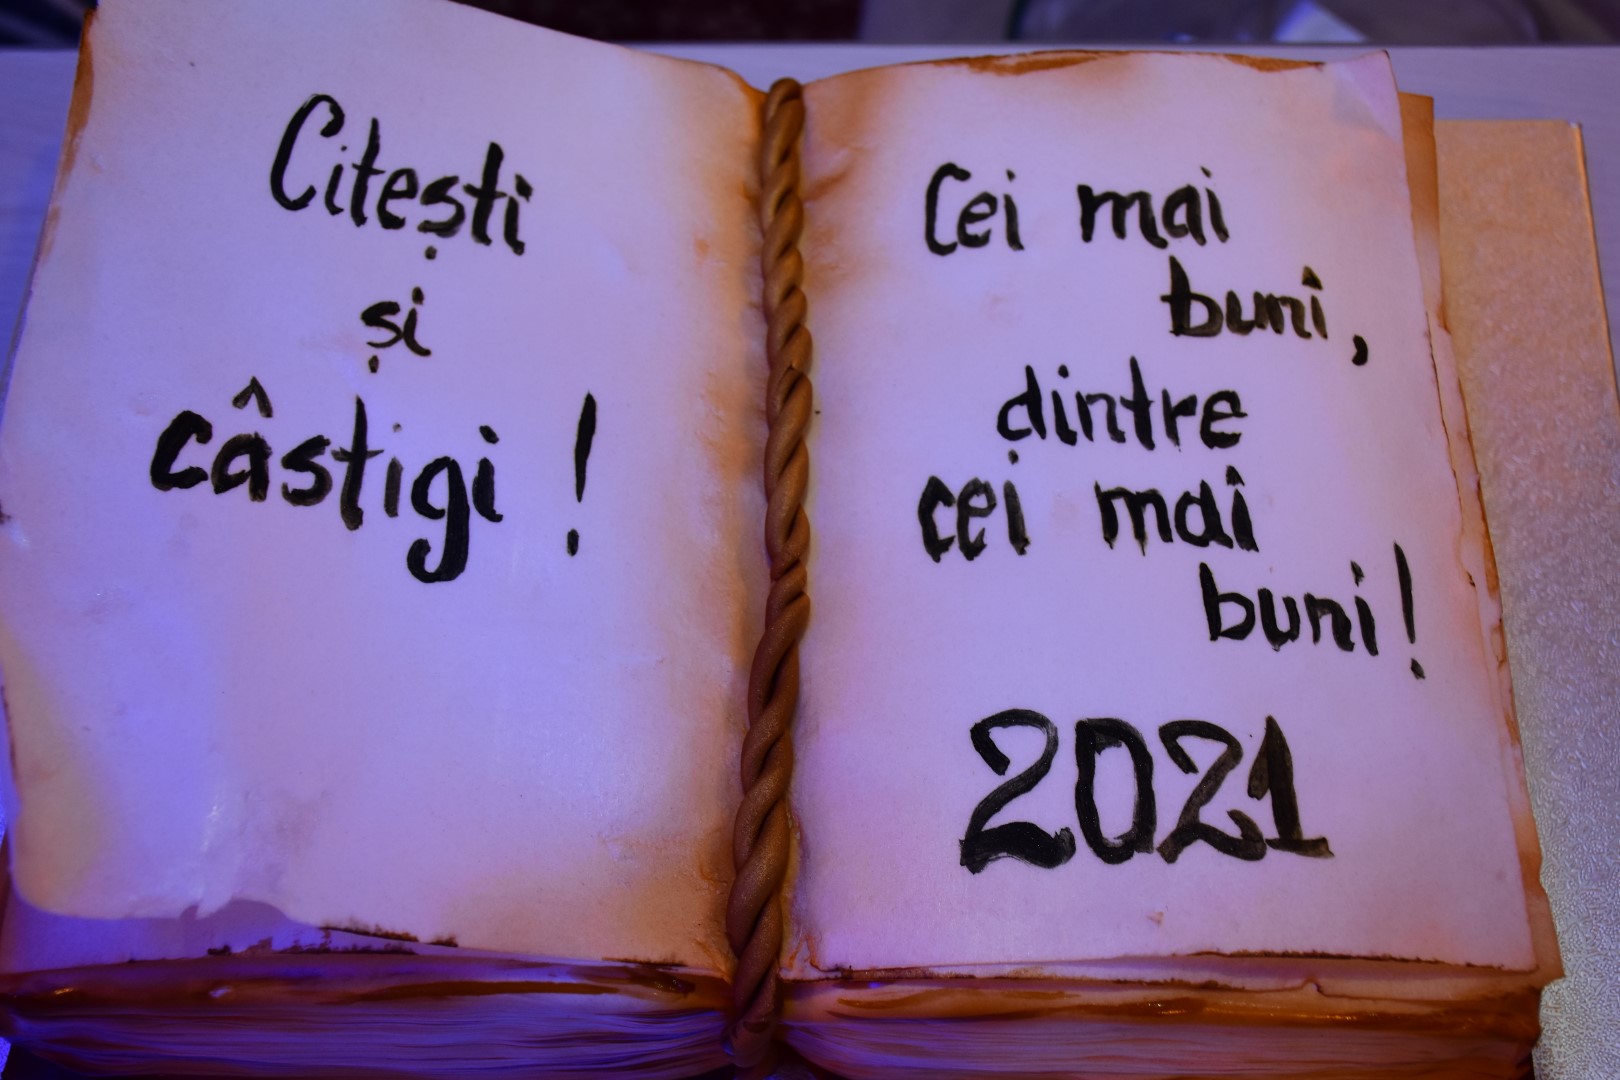 Citești
și
câstigi !
Cei mai
buni,
dintre
cei mai
buni!
2021